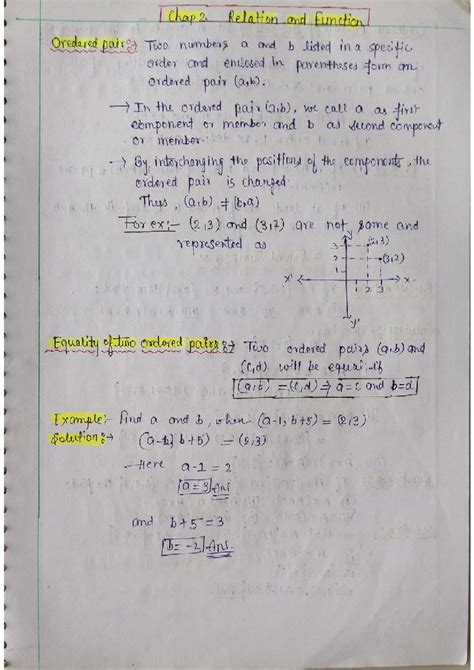 Chap 2. Relation and function
Oredered pair:→ Two numbers a and b listed in a specific
order and enclosed in parentheses form an
ordered pair (a,b).
→ In the ordered pair (a,b), we call a as first
component or member and b as second component
or member.
→ By interchanging the positions of the components, the
ordered pair is changed.
Thus, (a,b) ≠ (b,a)
For ex:- (2,3) and (3,2) are not same and
represented as
y
3 (2,3)
2 (3,2)
1
x' x
1 2 3
y'
Equality of two ordered pairs:→ Two ordered pairs (a,b) and
(c,d) will be equal if
(a,b) = (c,d) ⇒ a=c and b=d
Example:- Find a and b, when (a-1, b+5) = (2,3)
Solution:→ (a-1, b+5) = (2,3)
Here a-1 = 2
a=3 Ans
and b+5 = 3
b= -2 Ans.